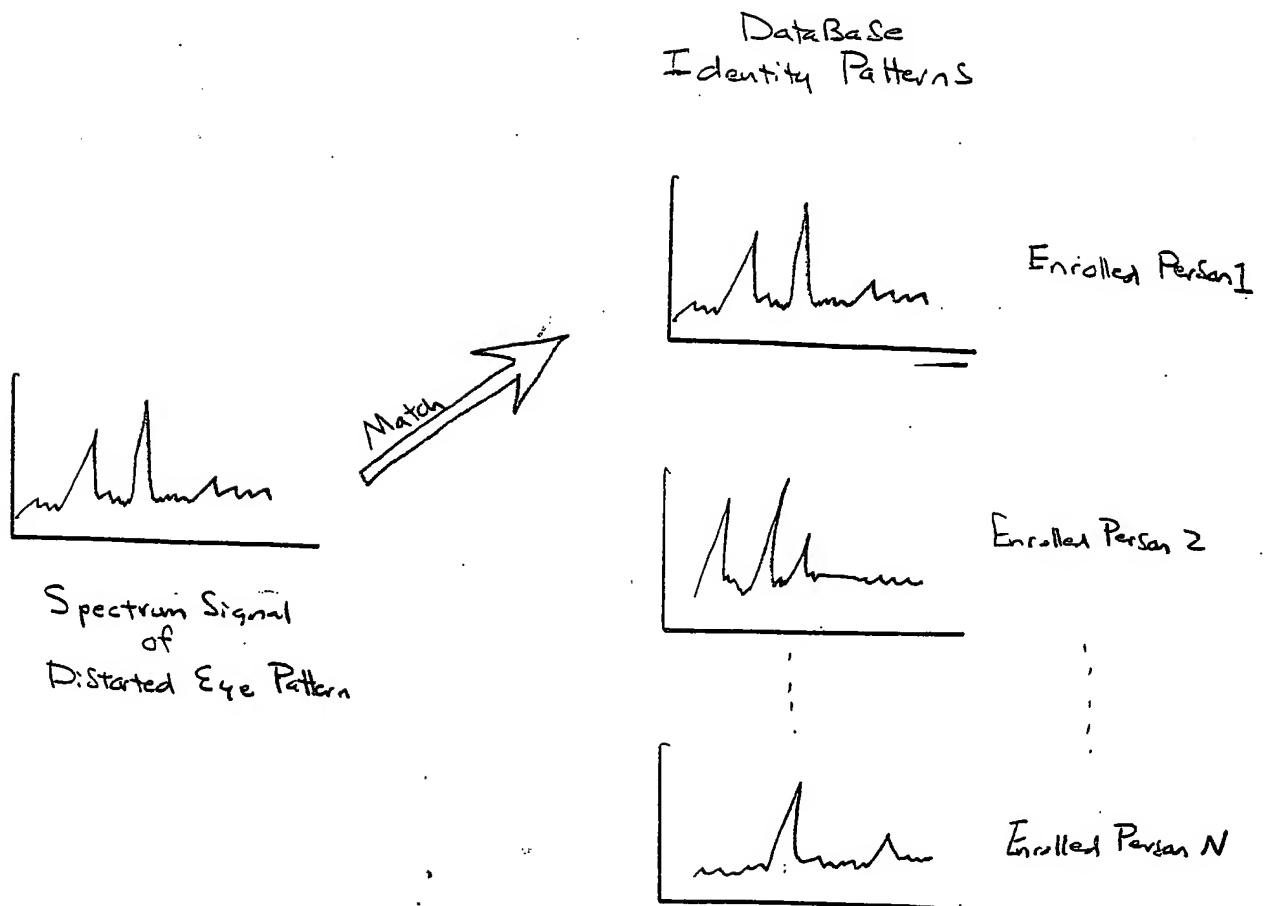 DataBase
Identity Patterns
Enrolled Person 1
Match
Enrolled Person 2
Spectrum Signal
of
Distarted Eye Pattern
Enrolled Person N